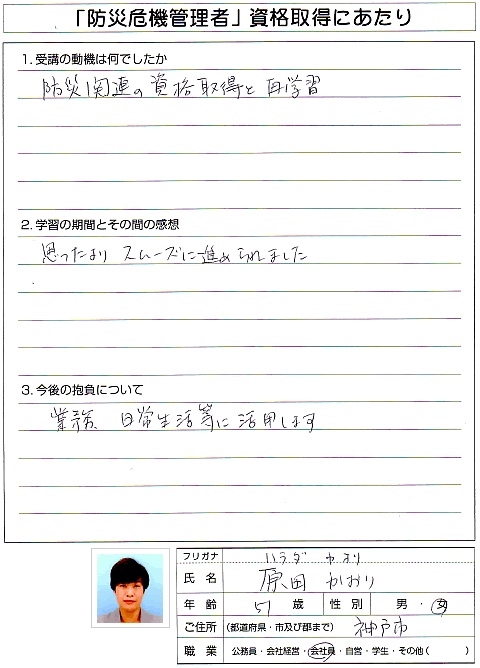 「防災危機管理者」資格取得にあたり
1.受講の動機は何でしたか
防災関連の資格取得と再学習
2.学習の期間とその間の感想
思ったより スムーズに進められました
3.今後の抱負について
業務、日常生活等に活用します
フリガナ ハラダ カオリ
氏名 原田 かおり
年齢 51 歳 性別 男・女
ご住所 (都道府県・市及び郡まで) 神戸市
職業 公務員・会社経営・会社員・自営・学生・その他( )